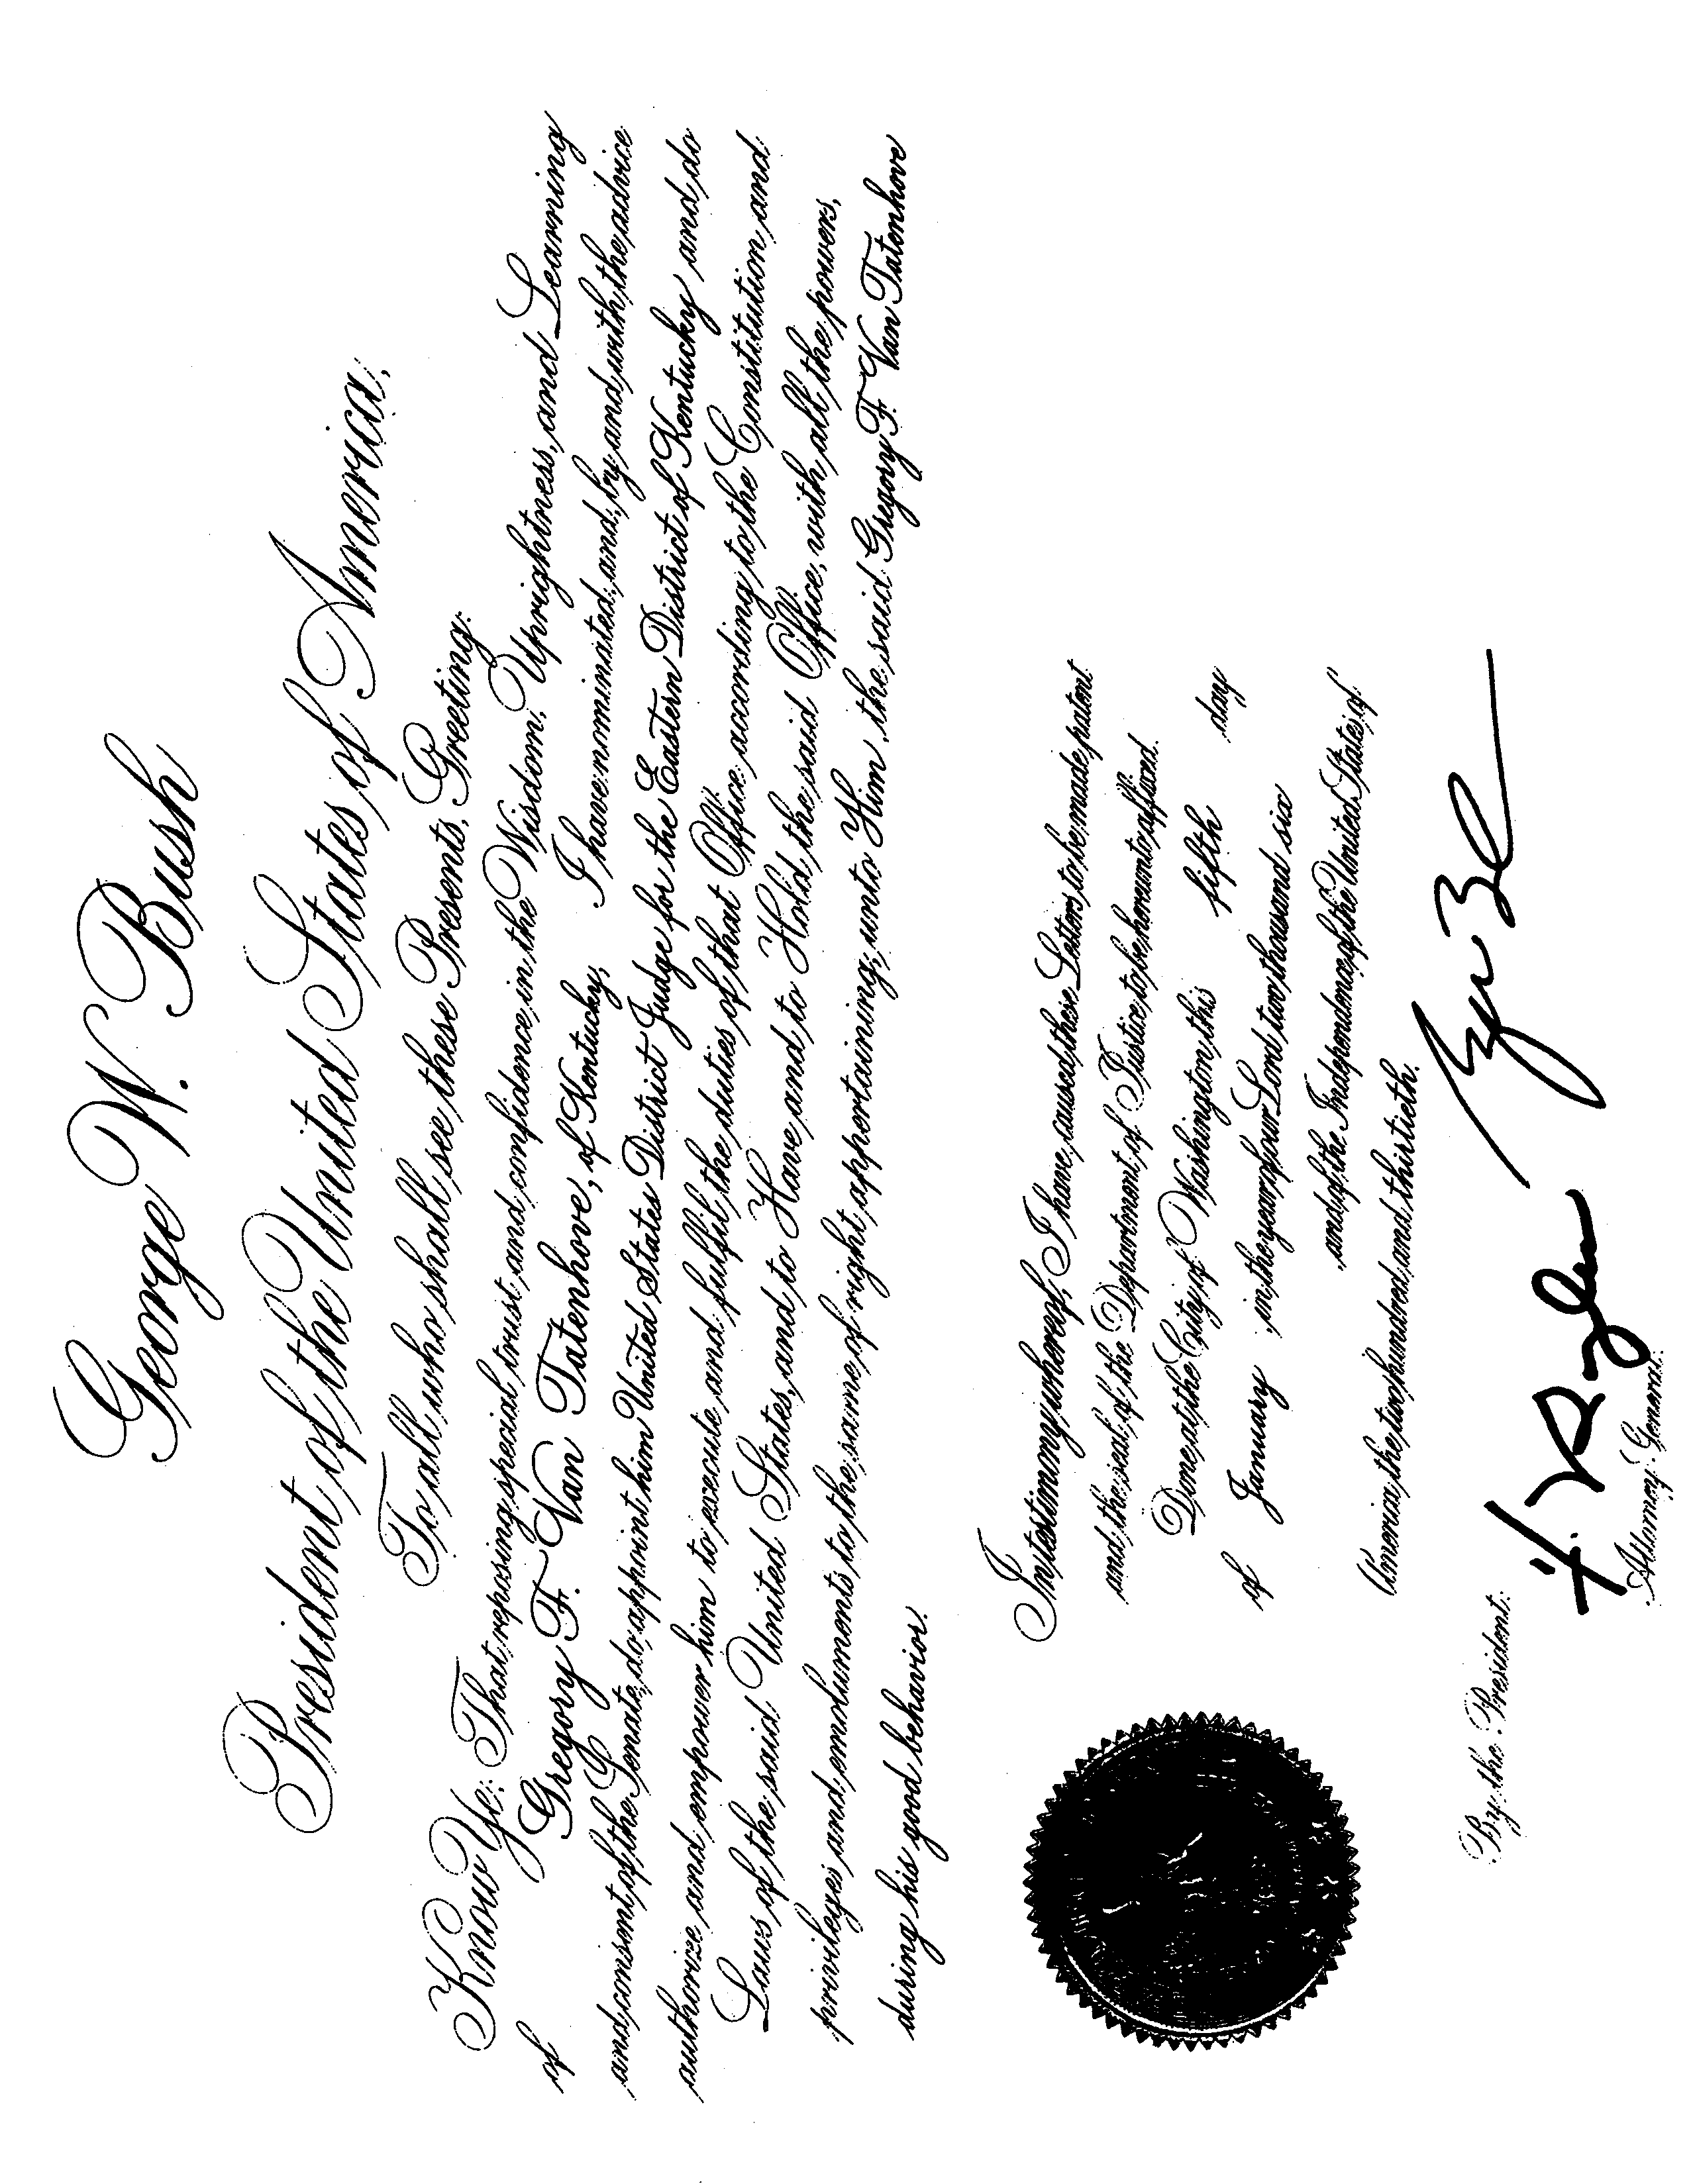 George W. Bush
President of the United States of America,
To all who shall see these Presents, Greeting:
Know Ye: That reposing special trust and confidence in the Wisdom, Uprightness, and Learning
of Gregory F. Van Tatenhove, of Kentucky, I have nominated, and, by and with the advice
and consent of the Senate, do appoint him United States District Judge for the Eastern District of Kentucky and do
authorize and empower him to execute and fulfil the duties of that Office according to the Constitution and
Laws of the said United States, and to Have and to Hold the said Office, with all the powers,
privileges and emoluments to the same of right appertaining, unto Him, the said Gregory F. Van Tatenhove
during his good behavior.
In testimony whereof, I have caused these Letters to be made patent
and the seal of the Department of Justice to be hereunto affixed.
Done at the City of Washington this fifth day
of January in the year of our Lord two thousand six
and of the Independence of the United States of
America the two hundred and thirtieth.
By the President:
Attorney General.